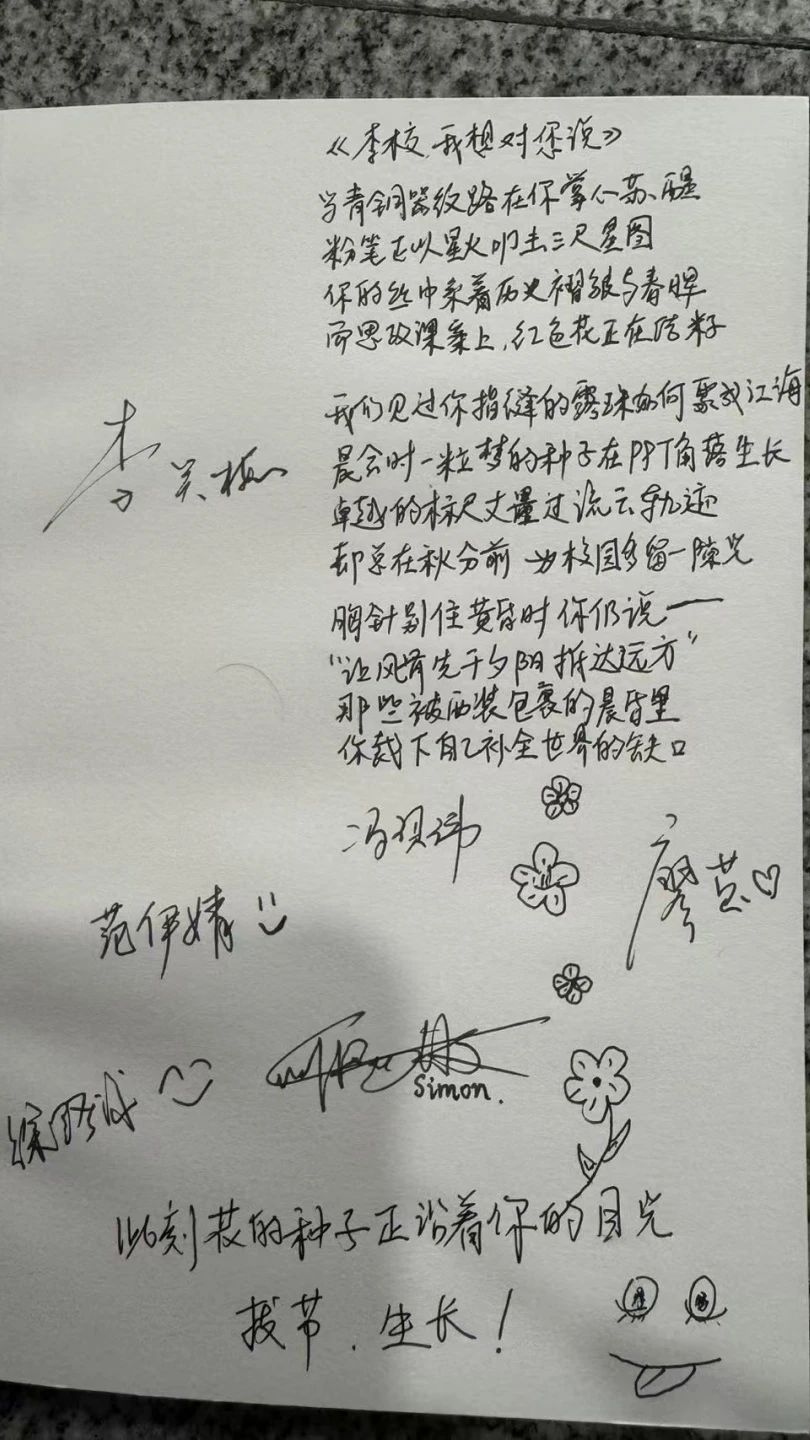 《李校，我想对您说》
当青铜器纹路在你掌心苏醒
粉笔正以星火叩击三尺星图
你的丝巾系着历史褶皱与春晖
而思政课案上，红色花正在结籽
我们见过你指缝的露珠如何聚成江海
晨会时一粒梦的种子在PPT角落生长
卓越的标尺丈量过流云轨迹
却总在秋分前 为校园多留一隙光
胸针别住黄昏时你仍说——
“让风背先于夕阳抵达远方”
那些被西装包裹的晨昏里
你裁下自己补全世界的缺口
李
范伊婧
廖
Simon.
此刻花的种子正沿着你的目光
拔节、生长！